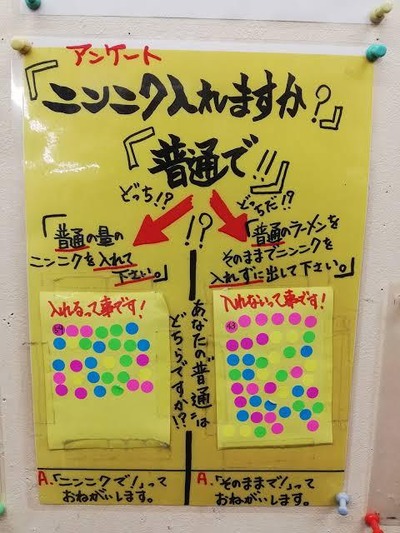 アンケート
『ニンニク入れますか？』
『普通で!!』
どっち!?
どっちだ!?
「普通の量の
ニンニクを入れて
下さい。」
!?
「普通のラーメンを
そのままでニンニクを
入れずに出して下さい。」
入れるって事です!
あなたの"普通"は
どちらですか!?
入れないって事です!
A.「ニンニクで!」って
おねがいします。
A.「そのままで!」って
おねがいします。